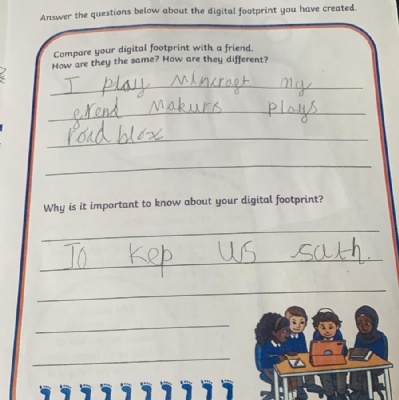 Answer the questions below about the digital footprint you have created.
Compare your digital footprint with a friend.
How are they the same? How are they different?
I play Mincragt my
grend Makurs plays
road blox
Why is it important to know about your digital footprint?
To kep us sath.